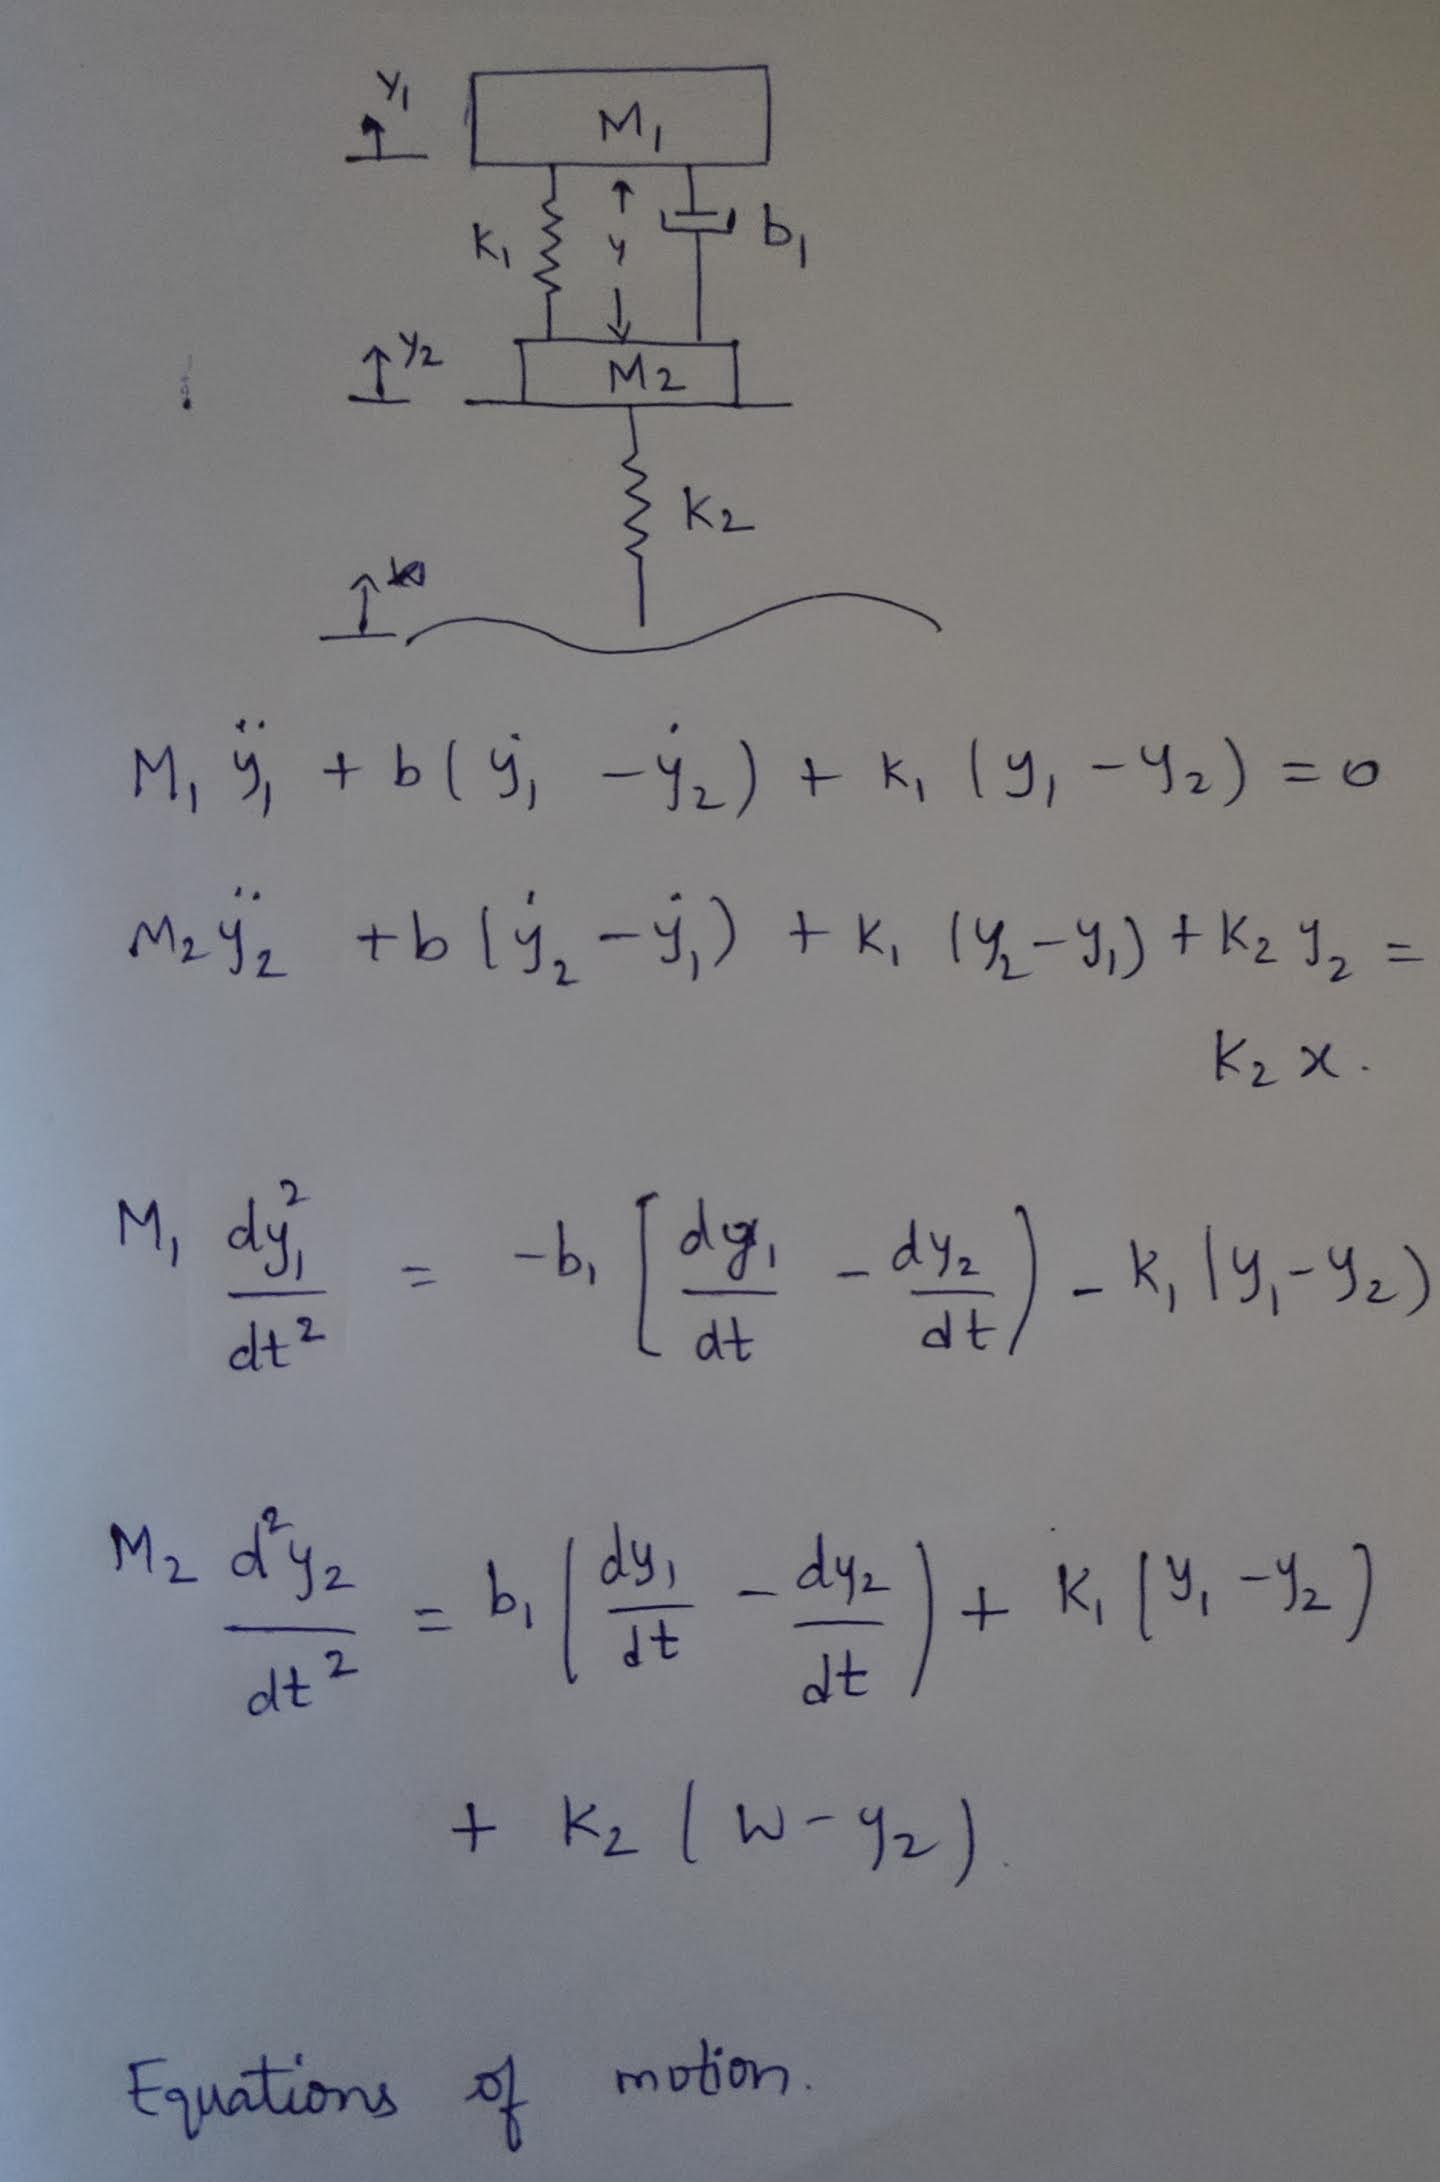 y₁
M₁
K₁ y b₁
y₂
M₂
K₂
M₁ ÿ₁ + b(ẏ₁ - ẏ₂) + K₁ (y₁ - y₂) = 0
M₂ÿ₂ + b(ẏ₂ - ẏ₁) + K₁ (y₂ - y₁) + K₂ y₂ =
K₂ x.
M₁ dy₁²/dt² = -b₁ [dy₁/dt - dy₂/dt) - K₁ (y₁ - y₂)
M₂ d²y₂/dt² = b₁ (dy₁/dt - dy₂/dt) + K₁ (y₁ - y₂)
+ K₂ (W - y₂).
Equations of motion.